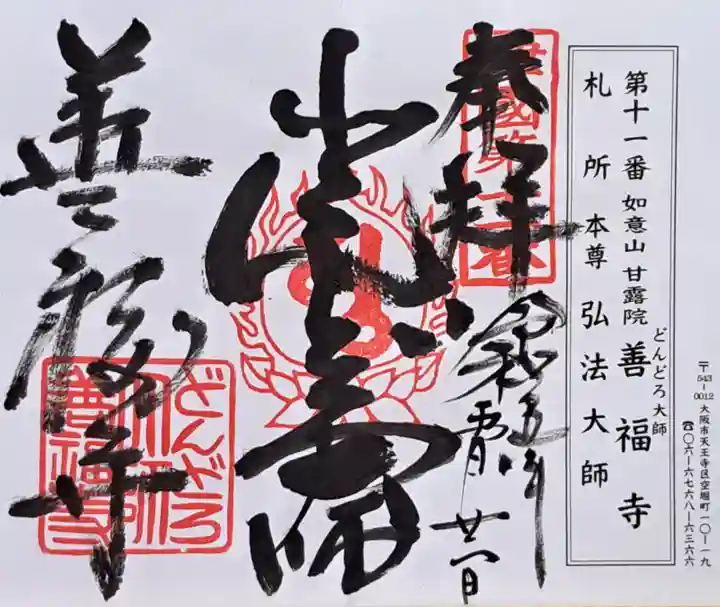 〒543-0012 大阪市天王寺区空堀町一〇ー一九
☎〇六ー六七六八ー六三六六
どんどろ大師
第十一番 如意山 甘露院 善福寺
札所本尊 弘法大師
奉拝
令和五年
廿一日
善福寺
どんどろ
大師
善福寺